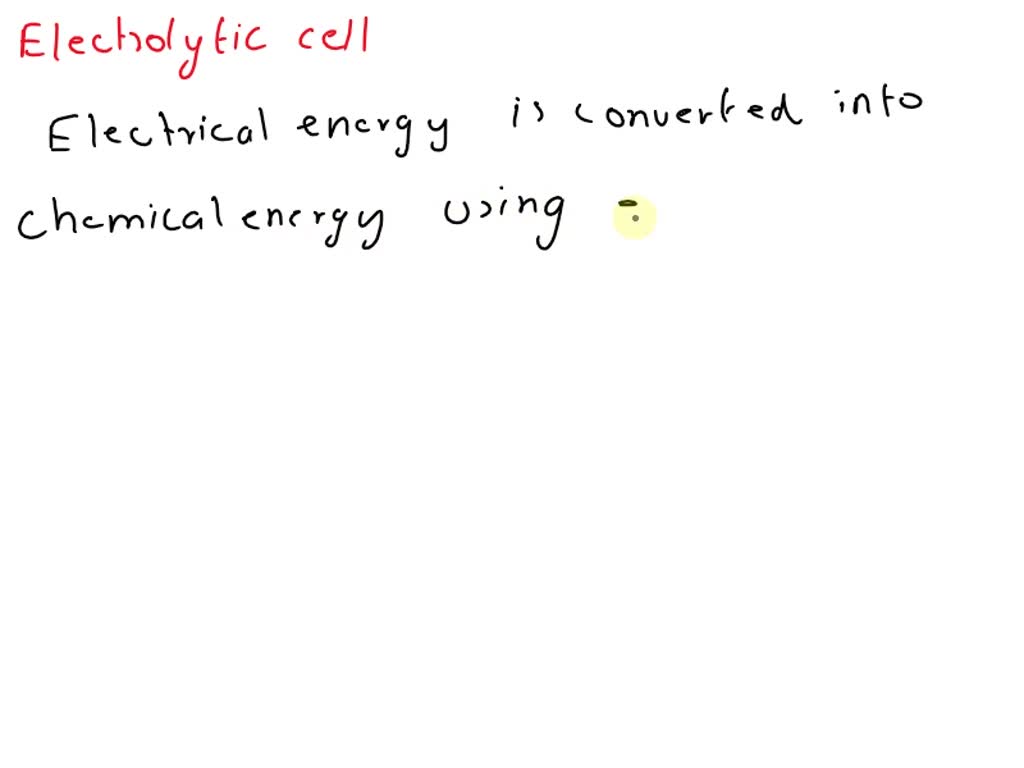 Electrolytic cell
Electrical energy is converted into
chemical energy using